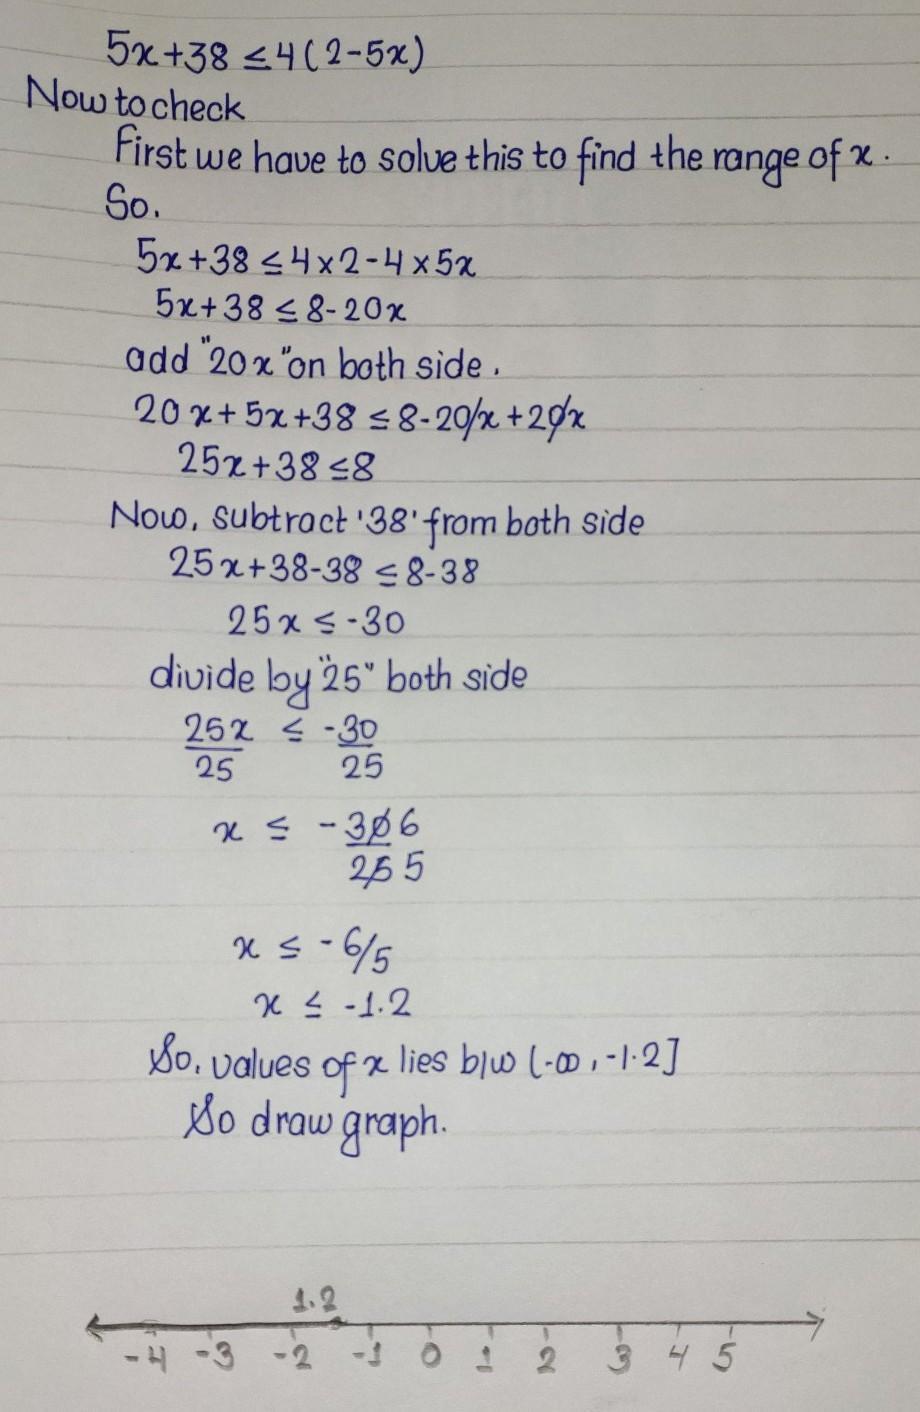 5x+38 ≤ 4(2-5x)
Now to check
First we have to solve this to find the range of x.
So.
5x+38 ≤ 4×2-4×5x
5x+38 ≤ 8-20x
add "20x" on both side.
20x+5x+38 ≤ 8-20x+20x
25x+38 ≤ 8
Now, subtract '38' from both side
25x+38-38 ≤ 8-38
25x ≤ -30
divide by "25" both side
25x/25 ≤ -30/25
x ≤ -30 6/25 5
x ≤ -6/5
x ≤ -1.2
So, values of x lies b/w (-∞, -1.2]
So draw graph.
1.2
-4 -3 -2 -1 0 1 2 3 4 5